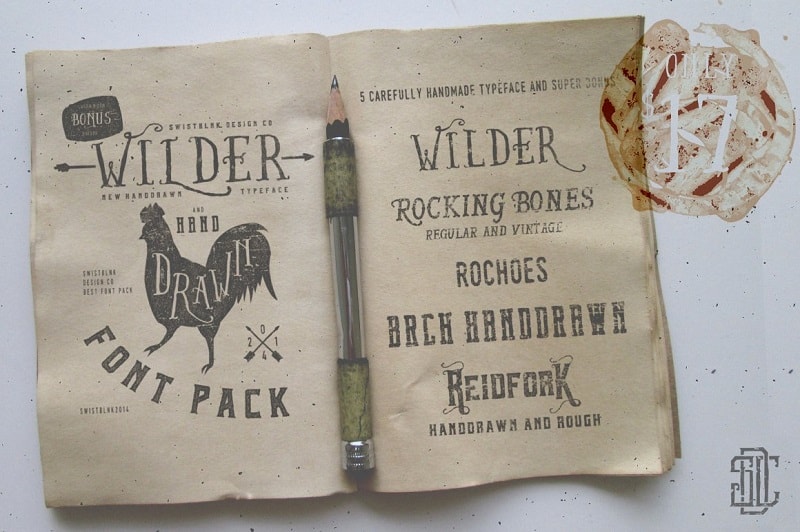 BONUS
SWISTBLNK DESIGN CO
WILDER
NEW HANDDRAWN TYPEFACE
AND
HAND
DRAWN
SWISTBLNK
DESIGN CO
BEST FONT PACK
2 0 1 4
FONT PACK
SWISTBLNK2014
5 CAREFULLY HANDMADE TYPEFACE AND SUPER BONUS
WILDER
ROCKING BONES
REGULAR AND VINTAGE
ROCHOES
BRCH HANDDRAWN
REIDFORK
HANDDRAWN AND ROUGH
ONLY
$17